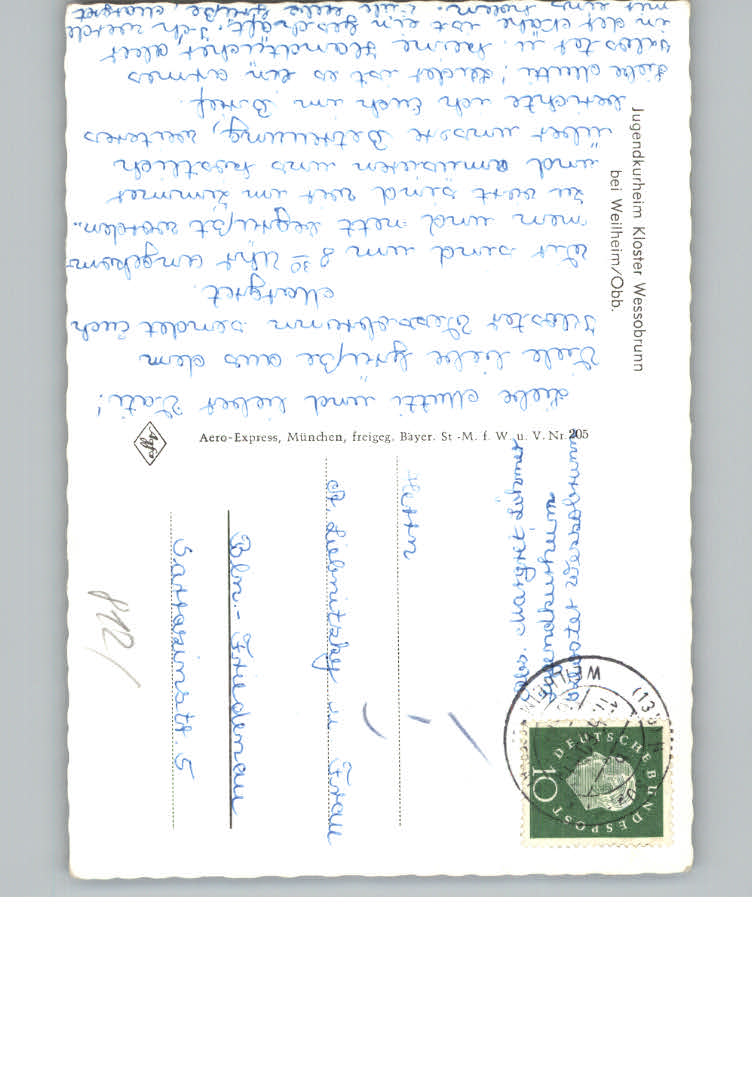 Jugendkurheim Kloster Wessobrunn
bei Weilheim/Obb.
Liebe Mutti und lieber Vati!
Viele liebe Grüße aus dem
Kloster Wessobrunn sendet Euch
Margret.
Wir sind um 8 30 Uhr angekom-
men und nett begrüßt worden.
Zu viert sind wir im Zimmer
und amüsieren uns köstlich
über unsere Betreuung, weiteres
berichte ich Euch im Brief.
Liebe Mutti! Leider ist es ein armes
Kloster u. keine Handtücher aber
in der Nähe ist ein Geschäft. Ich werde
mir eins holen. Viele liebe Grüße, Margret
Aero-Express, München, freigeg. Bayer. St.-M. f. W. u. V. Nr. 205
Agfa
Abs. Margret
Jugendkurheim
Kloster Wessobrunn
WEILHEIM
(13b)
DEUTSCHE BUNDESPOST
10
Herrn
A. Liebnitzky u. Frau
Bln.-Friedenau
Sarrazinstr. 5
812/